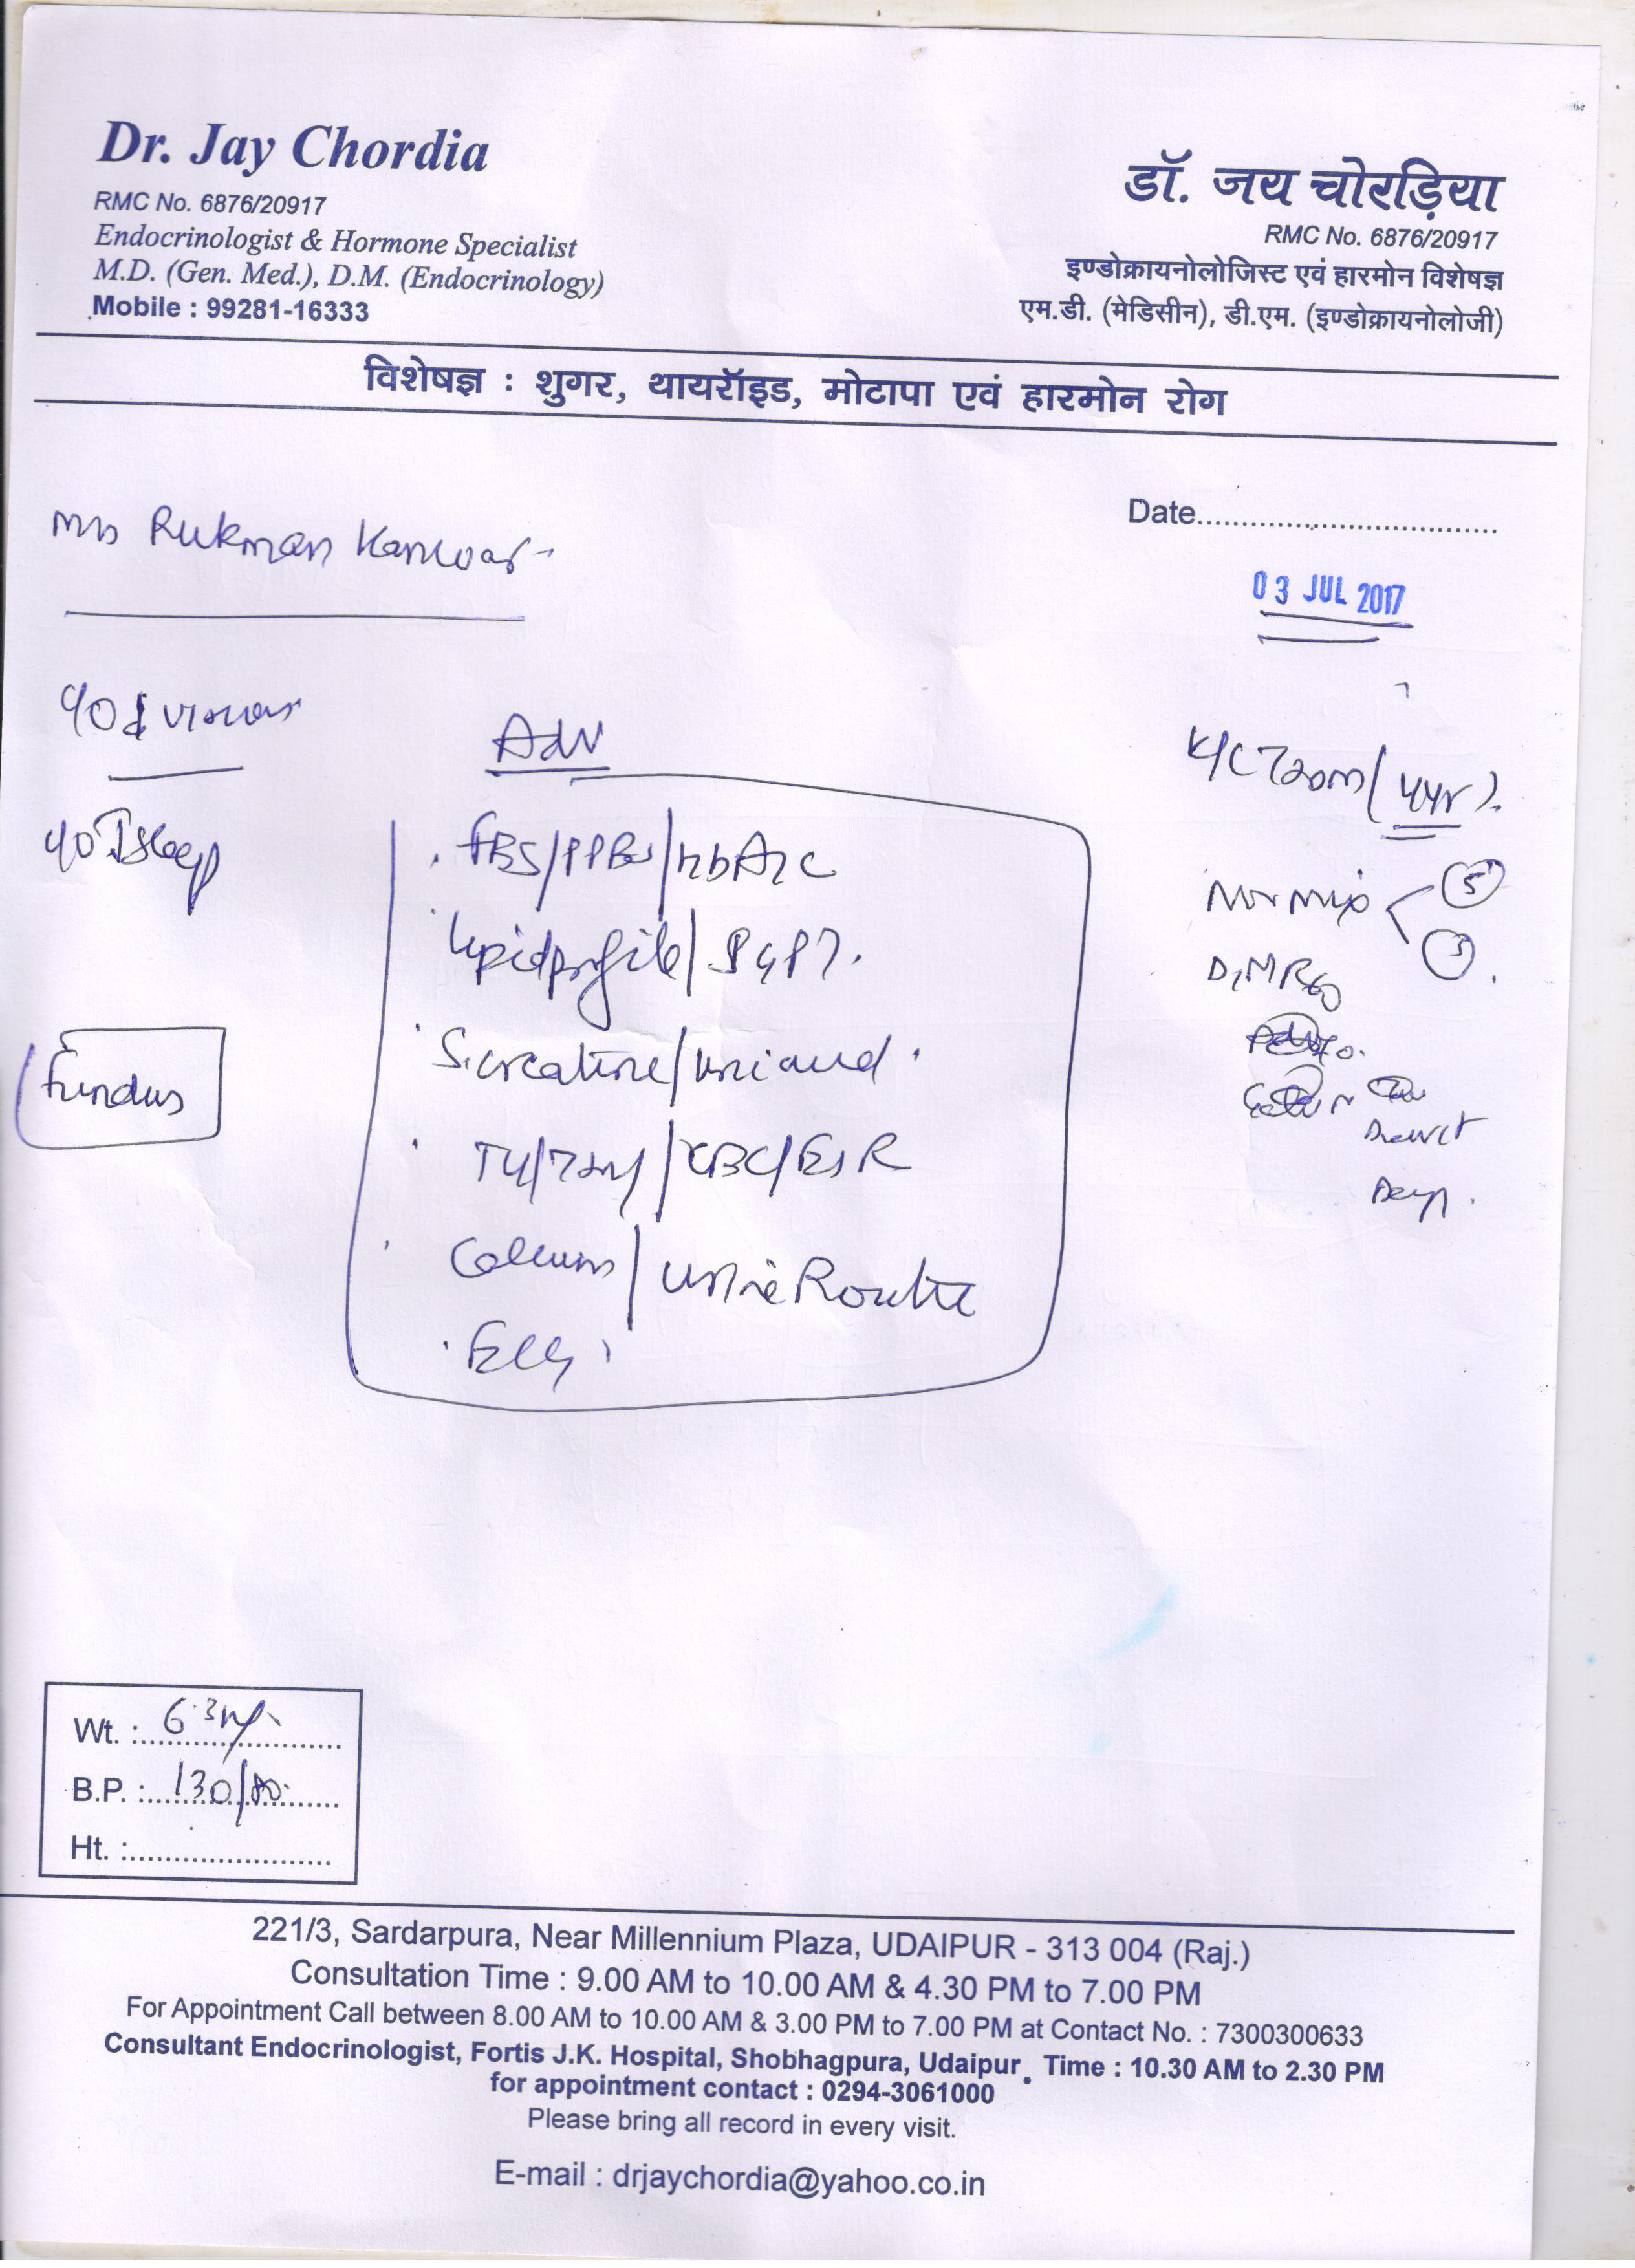 Dr. Jay Chordia
RMC No. 6876/20917
Endocrinologist & Hormone Specialist
M.D. (Gen. Med.), D.M. (Endocrinology)
Mobile : 99281-16333
डॉ. जय चोरड़िया
RMC No. 6876/20917
इण्डोक्रायनोलोजिस्ट एवं हारमोन विशेषज्ञ
एम.डी. (मेडिसीन), डी.एम. (इण्डोक्रायनोलोजी)
विशेषज्ञ : शुगर, थायरॉइड, मोटापा एवं हारमोन रोग
Date
Rukman Kanwar
03 JUL 2017
Adv
FBS/PPBS/HbA1c
Lipid profile/SGPT.
S. creatine/
T4/TSH/CBC/ESR
Calcium/Urine Routine
ECG
Fundus
K/C T2DM (4yr).
5
Wt. : 63kg.
B.P. : 130/80.
Ht. :
221/3, Sardarpura, Near Millennium Plaza, UDAIPUR - 313 004 (Raj.)
Consultation Time : 9.00 AM to 10.00 AM & 4.30 PM to 7.00 PM
For Appointment Call between 8.00 AM to 10.00 AM & 3.00 PM to 7.00 PM at Contact No. : 7300300633
Consultant Endocrinologist, Fortis J.K. Hospital, Shobhagpura, Udaipur. Time : 10.30 AM to 2.30 PM
for appointment contact : 0294-3061000
Please bring all record in every visit.
E-mail : drjaychordia@yahoo.co.in